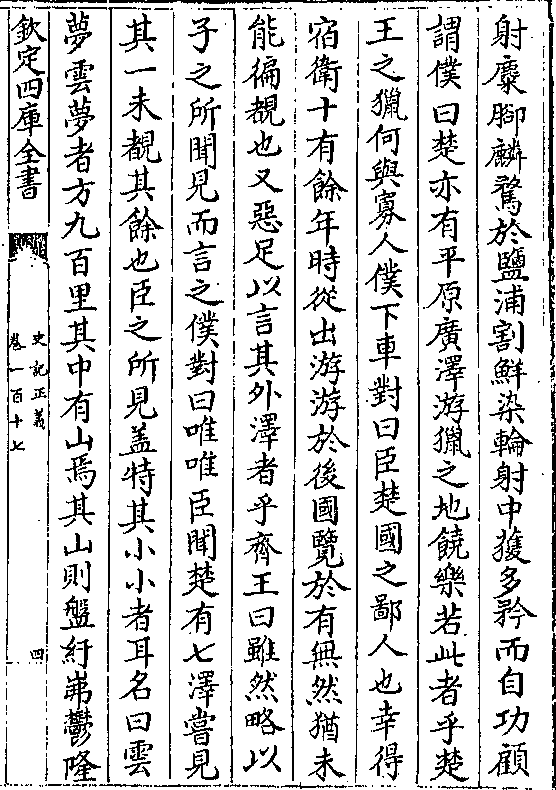 射麋腳麟騖於鹽浦割鮮染輪射中獲多矜而自功顧
謂僕曰楚亦有平原廣澤游獵之地饒樂若此者乎楚
王之獵何與寡人僕下車對曰臣楚國之鄙人也幸得
宿衛十有餘年時從出游游於後園覽於有無然猶未
能徧覩也又惡足以言其外澤者乎齊王曰雖然略以
子之所聞見而言之僕對曰唯唯臣聞楚有七澤嘗見
其一未覩其餘也臣之所見蓋特其小小者耳名曰雲
夢雲夢者方九百里其中有山焉其山則盤紆岪鬱隆
欽定四庫全書
史記正義
卷一百十七
四